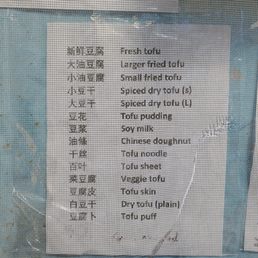 新鮮豆腐 Fresh tofu
大油豆腐 Larger fried tofu
小油豆腐 Small fried tofu
小豆干 Spiced dry tofu (s)
大豆干 Spiced dry tofu (L)
豆花 Tofu pudding
豆浆 Soy milk
油條 Chinese doughnut
干絲 Tofu noodle
百叶 Tofu sheet
菜豆腐 Veggie tofu
豆腐皮 Tofu skin
白豆干 Dry tofu (plain)
豆腐卜 Tofu puff